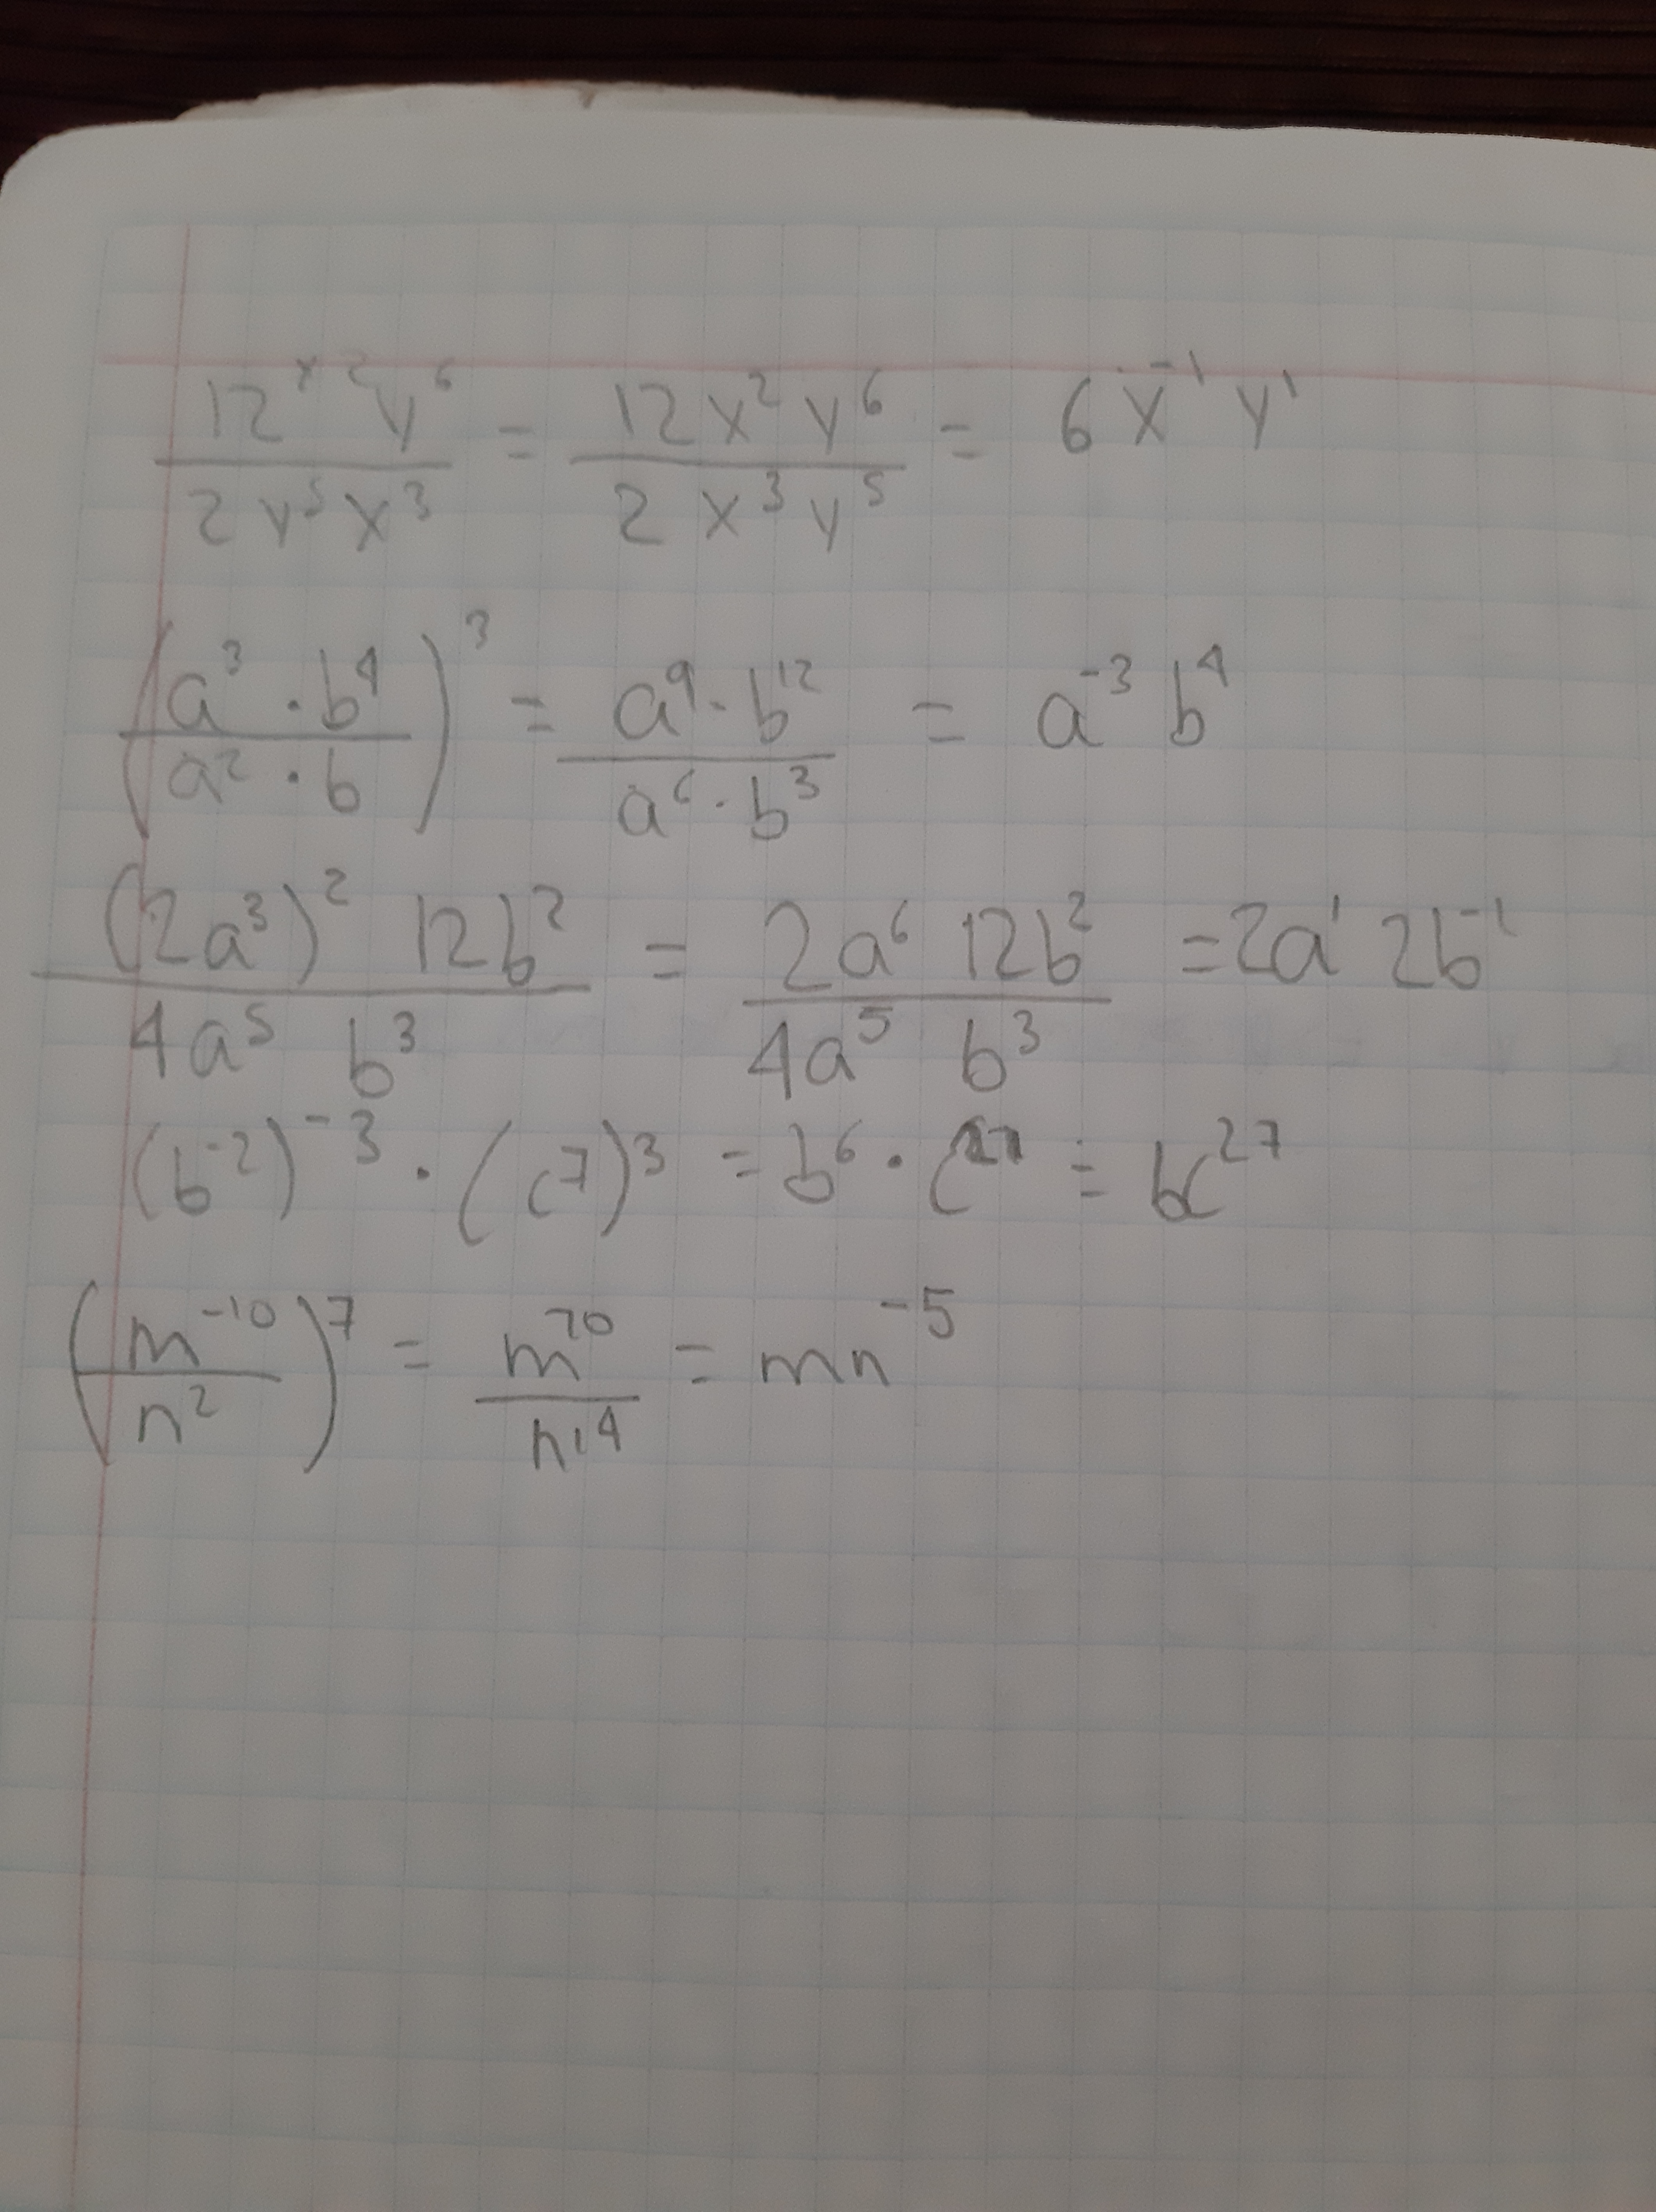 12x²y⁶ / 2y⁵x³ = 12x²y⁶ / 2x³y⁵ = 6x⁻¹y¹
(a³ · b⁴ / a² · b)³ = a⁹ · b¹² / a⁶ · b³ = a⁻³ b⁴
(2a³)² 12b² / 4a⁵ b³ = 2a⁶ 12b² / 4a⁵ b³ = 2a¹ 2b⁻¹
(b⁻²)⁻³ · (c⁷)³ = b⁶ · c²⁷ = bc²⁷
(m⁻¹⁰ / n²)⁷ = m⁷⁰ / n¹⁴ = mn⁻⁵